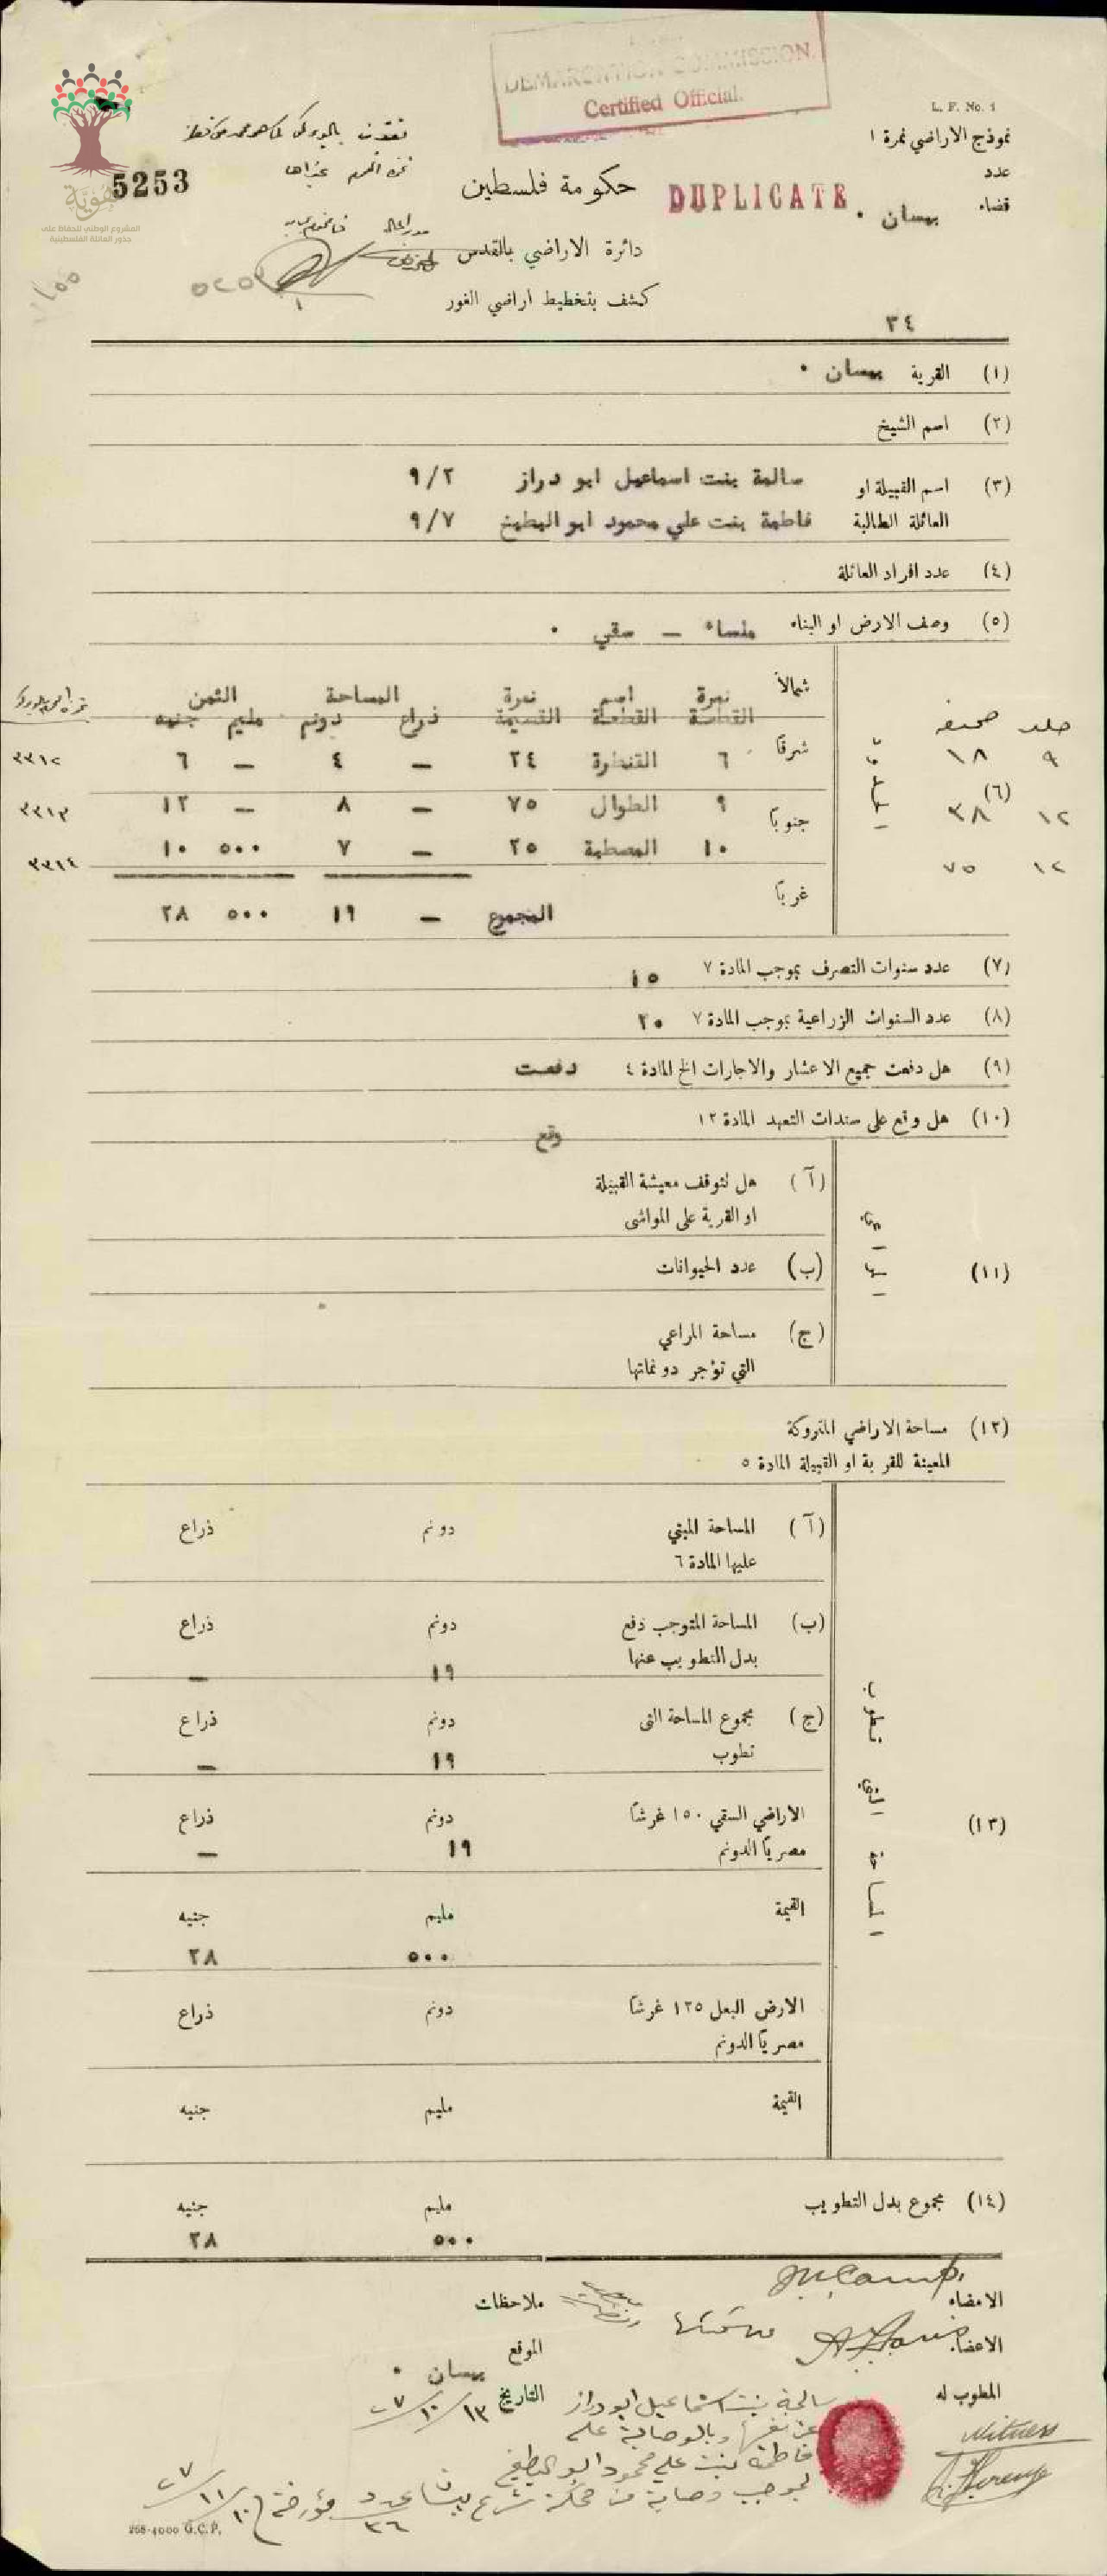 DEMARCATION COMMISSION.
Certified Official.
L. F. No. 1
نموذج الاراضي نمرة ١
عدد
قضاء بيسان .
DUPLICATE
حكومة فلسطين
5253
هوية
المشروع الوطني للحفاظ على
جذور العائلة الفلسطينية
دائرة الاراضي بالقدس
٥٢٥٣
كشف بتخطيط اراضي الغور
٣٤
(١) القرية بيسان .
(٢) اسم الشيخ
(٣) اسم القبيلة او سالمة بنت اسماعيل ابو دراز ٩/٢
العائلة الطالبة فاطمة بنت علي محمود ابو البطيخ ٩/٧
(٤) عدد افراد العائلة
(٥) وصف الارض او البناء ملساء — سقي .
شمالاً نمرة اسم نمرة المساحة الثمن
جلد صحيفة القطعة القسيمة ذراع دونم مليم جنيه
٩ ١٨ شرقاً ٦ القنطرة ٢٤ — ٤ — ٦ ٣٣١٢
(٦) الحدود
١٢ ٣٨ جنوباً ٩ الطوال ٧٥ — ٨ — ١٢ ٣٣١٣
١٢ ٧٥ ١٠ المصطبة ٢٥ — ٧ ٥٠٠ ١٠ ٣٣١٤
غرباً المجموع — ١٩ ٥٠٠ ٢٨
(٧) عدد سنوات التصرف بموجب المادة ٧ ١٥
(٨) عدد السنوات الزراعية بموجب المادة ٧ ٢٠
(٩) هل دفعت جميع الاعشار والاجارات الخ المادة ٤ دفعت
(١٠) هل وقع على سندات التعهد المادة ١٢ وقع
(آ) هل تتوقف معيشة القبيلة
او القرية على المواشي
(١١) (ب) عدد الحيوانات
(ج) مساحة المراعي
التي تؤجر دونماتها
(١٢) مساحة الاراضي المتروكة
المعينة للقرية او القبيلة المادة ٥
(آ) المساحة المبني دونم ذراع
عليها المادة ٦
(ب) المساحة المتوجب دفع دونم ذراع
بدل التطويب عنها ١٩ —
(ج) مجموع المساحة التي دونم ذراع
تطوب ١٩ —
(١٣) الاراضي السقي ١٥٠ غرشاً دونم ذراع
مصرياً الدونم ١٩ —
القيمة مليم جنيه
٥٠٠ ٢٨
الارض البعل ١٢٥ غرشاً دونم ذراع
مصرياً الدونم
القيمة مليم جنيه
(١٤) مجموع بدل التطويب مليم جنيه
٥٠٠ ٢٨
الامضاء
ملاحظات
الاعضاء
الموقع بيسان .
المطوب له
التاريخ ١٣/١٠/٢٧
سالمة بنت اسماعيل ابو دراز
عن نفسها وبالوصاية على
فاطمة بنت علي محمود ابو البطيخ
Witness
بموجب وصاية من محكمة شرع بيسان عدد ٣٦ مؤرخة ١٠/١١/٢٧
268-4000 G.C.P.